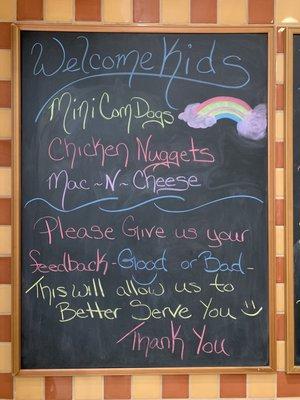 Welcome Kids
Mini Corn Dogs
Chicken Nuggets
Mac-N-Cheese
Please Give us your
feedback-Good or Bad-
This will allow us to
Better Serve You
Thank You